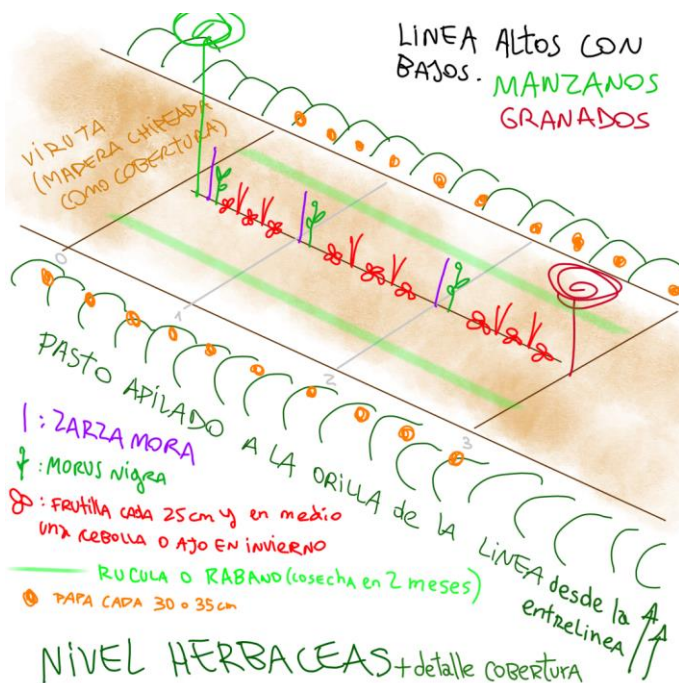 LINEA ALTOS CON
BAJOS. MANZANOS
GRANADOS
VIRUTA
(MADERA CHIPEADA
COMO COBERTURA)
0
1
2
3
PASTO APILADO A LA ORILLA de LA LINEA desde la
entrelinea
| : ZARZA MORA
: MORUS NIGRA
: FRUTILLA CADA 25cm y en medio
UNA CEBOLLA O AJO EN INVIERNO
RUCULA O RABANO (COSECHA EN 2 MESES)
PAPA CADA 30 o 35cm
NIVEL HERBACEAS + detalle COBERTURA